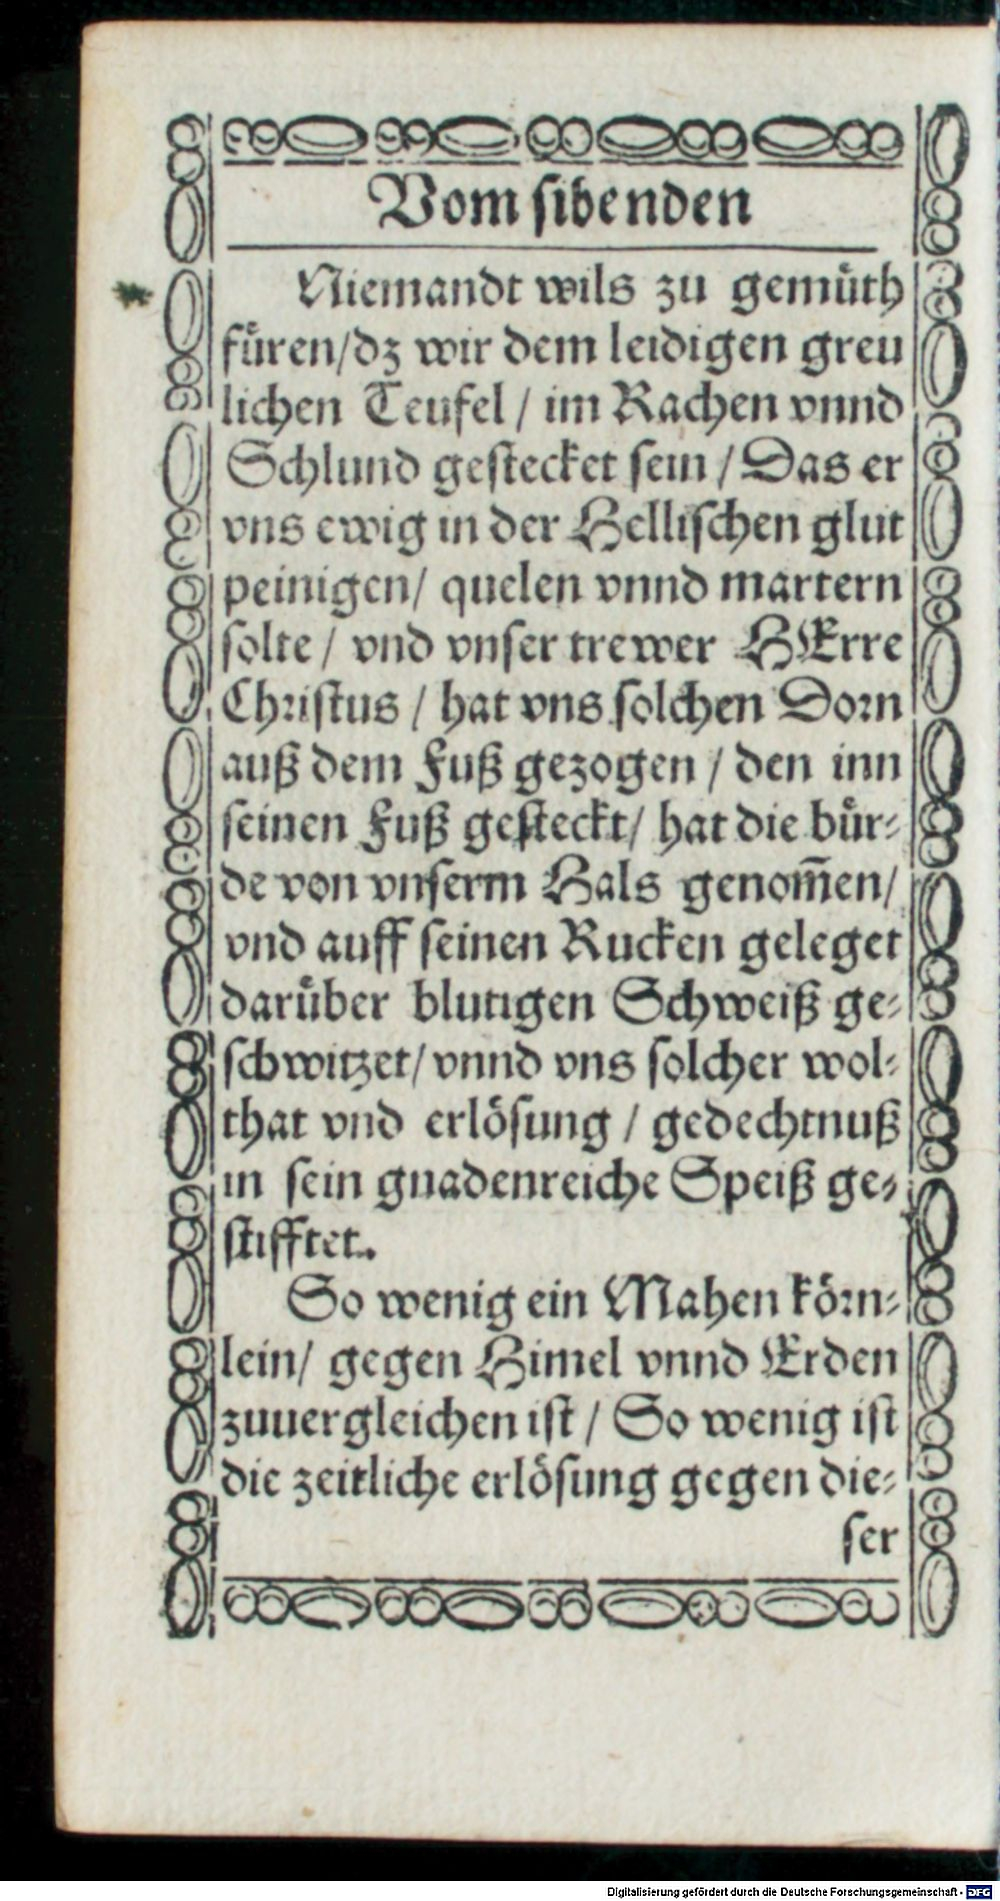 Vom sibenden
Niemandt wils zu gemüth
füren/dz wir dem leidigen greu
lichen Teufel / im Rachen vnnd
Schlund gestecket sein / Das er
vns ewig in der Hellischen glut
peinigen/ quelen vnnd martern
solte / vnd vnser trewer HErre
Christus / hat vns solchen Dorn
auß dem Fuß gezogen / den inn
seinen Fuß gesteckt/ hat die bür-
de von vnserm Hals genom̄en/
vnd auff seinen Rucken geleget
darüber blutigen Schweiß ge-
schwitzet/ vnnd vns solcher wol-
that vnd erlösung / gedechtnuß
in sein gnadenreiche Speiß ge-
stifftet.
So wenig ein Mahen körn-
lein/ gegen Himel vnnd Erden
zuuergleichen ist / So wenig ist
die zeitliche erlösung gegen die-
ser
Digitalisierung gefördert durch die Deutsche Forschungsgemeinschaft - DFG